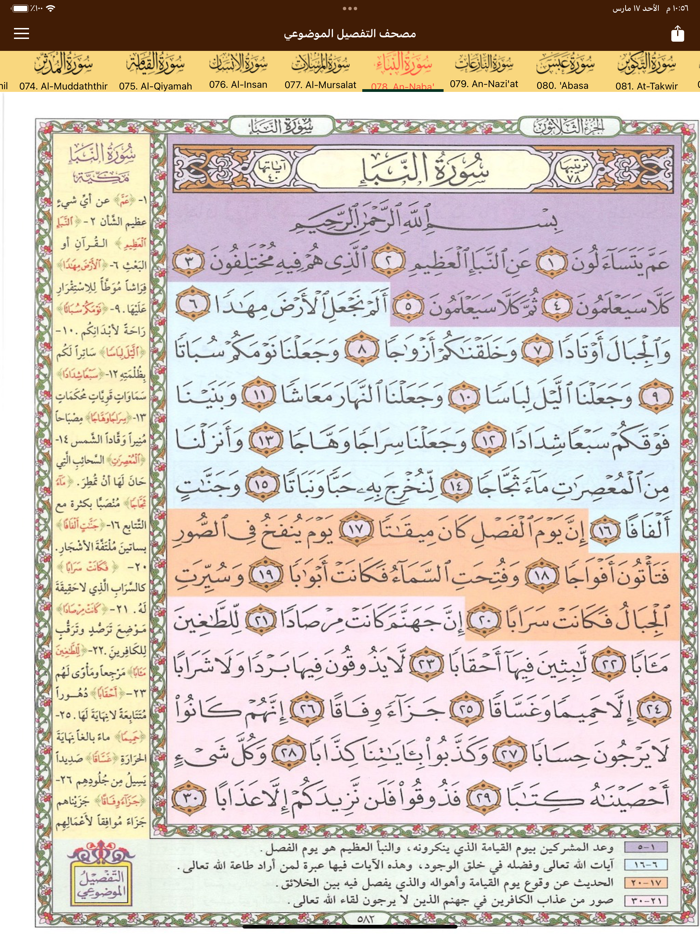 ١٠:٥٦ الأحد ١٧ مارس
٪١٠٠
مصحف التفصيل الموضوعي
سورة المدثر سورة القيامة سورة الإنسان سورة المرسلات سورة النبإ سورة النازعات سورة عبس سورة التكوير
mil 074. Al-Muddaththir 075. Al-Qiyamah 076. Al-Insan 077. Al-Mursalat 078. An-Naba' 079. An-Nazi'at 080. 'Abasa 081. At-Takwir
الجزء الثلاثون
سورة النبإ
ترتيبها ٧٨
سُورَةُ النَّبَإِ
آياتها ٤٠
بِسْمِ اللَّهِ الرَّحْمَٰنِ الرَّحِيمِ
عَمَّ يَتَسَاءَلُونَ ١ عَنِ النَّبَإِ الْعَظِيمِ ٢ الَّذِي هُمْ فِيهِ مُخْتَلِفُونَ ٣
كَلَّا سَيَعْلَمُونَ ٤ ثُمَّ كَلَّا سَيَعْلَمُونَ ٥ أَلَمْ نَجْعَلِ الْأَرْضَ مِهَادًا ٦
وَالْجِبَالَ أَوْتَادًا ٧ وَخَلَقْنَاكُمْ أَزْوَاجًا ٨ وَجَعَلْنَا نَوْمَكُمْ سُبَاتًا
٩ وَجَعَلْنَا اللَّيْلَ لِبَاسًا ١٠ وَجَعَلْنَا النَّهَارَ مَعَاشًا ١١ وَبَنَيْنَا
فَوْقَكُمْ سَبْعًا شِدَادًا ١٢ وَجَعَلْنَا سِرَاجًا وَهَّاجًا ١٣ وَأَنْزَلْنَا
مِنَ الْمُعْصِرَاتِ مَاءً ثَجَّاجًا ١٤ لِنُخْرِجَ بِهِ حَبًّا وَنَبَاتًا ١٥ وَجَنَّاتٍ
أَلْفَافًا ١٦ إِنَّ يَوْمَ الْفَصْلِ كَانَ مِيقَاتًا ١٧ يَوْمَ يُنْفَخُ فِي الصُّورِ
فَتَأْتُونَ أَفْوَاجًا ١٨ وَفُتِحَتِ السَّمَاءُ فَكَانَتْ أَبْوَابًا ١٩ وَسُيِّرَتِ
الْجِبَالُ فَكَانَتْ سَرَابًا ٢٠ إِنَّ جَهَنَّمَ كَانَتْ مِرْصَادًا ٢١ لِلطَّاغِينَ
مَآبًا ٢٢ لَابِثِينَ فِيهَا أَحْقَابًا ٢٣ لَا يَذُوقُونَ فِيهَا بَرْدًا وَلَا شَرَابًا
٢٤ إِلَّا حَمِيمًا وَغَسَّاقًا ٢٥ جَزَاءً وِفَاقًا ٢٦ إِنَّهُمْ كَانُوا
لَا يَرْجُونَ حِسَابًا ٢٧ وَكَذَّبُوا بِآيَاتِنَا كِذَّابًا ٢٨ وَكُلَّ شَيْءٍ
أَحْصَيْنَاهُ كِتَابًا ٢٩ فَذُوقُوا فَلَنْ نَزِيدَكُمْ إِلَّا عَذَابًا ٣٠
سُورَةُ النَّبَإِ
مكية
١- ﴿عَمَّ﴾ عن أي شيءٍ
عظيم الشأن ٢- ﴿النَّبَإِ
الْعَظِيمِ﴾ القرآن أو
البعث ٦- ﴿الْأَرْضَ مِهَادًا﴾
فراشا موطّأ للاستقرار
عليها. ٩- ﴿نَوْمَكُمْ سُبَاتًا﴾
راحة لأبدانكم. ١٠-
﴿اللَّيْلَ لِبَاسًا﴾ ساتراً لكم
بظلمته ١٢- ﴿سَبْعًا شِدَادًا﴾
سماوات قويات محكمات
١٣- ﴿سِرَاجًا وَهَّاجًا﴾ مصباحاً
منيراً وقّاداً الشمس ١٤-
﴿الْمُعْصِرَاتِ﴾ السحائب التي
حان لها أن تمطر. ﴿مَاءً
ثَجَّاجًا﴾ منصبّا بكثرة مع
التتابع ١٦- ﴿جَنَّاتٍ أَلْفَافًا﴾
بساتين ملتفّة الأشجار.
٢٠- ﴿فَكَانَتْ سَرَابًا﴾
كالسراب الذي لا حقيقة
له. ٢١- ﴿كَانَتْ مِرْصَادًا﴾
موضع ترصّد وترقّب
للكافرين. ٢٢- ﴿لِلطَّاغِينَ
مَآبًا﴾ مرجعاً ومأوى لهم
٢٣- ﴿أَحْقَابًا﴾ دهوراً
متتابعة لا نهاية لها. ٢٥-
﴿حَمِيمًا﴾ ماء بالغاً نهاية
الحرارة ﴿غَسَّاقًا﴾ صديداً
يسيل من جلودهم ٢٦-
﴿جَزَاءً وِفَاقًا﴾ جزيناهم
جزاء موافقاً لأعمالهم
١-٥ وعد المشركين بيوم القيامة الذي ينكرونه، والنبأ العظيم هو يوم الفصل.
٦-١٦ آيات الله تعالى وفضله في خلق الوجود، وهذه الآيات فيها عبرة لمن أراد طاعة الله تعالى.
١٧-٢٠ الحديث عن وقوع يوم القيامة وأهواله والذي يفصل فيه بين الخلائق.
٢١-٣٠ صور من عذاب الكافرين في جهنم الذين لا يرجون لقاء الله تعالى.
التفصيل
الموضوعي
٥٨٢